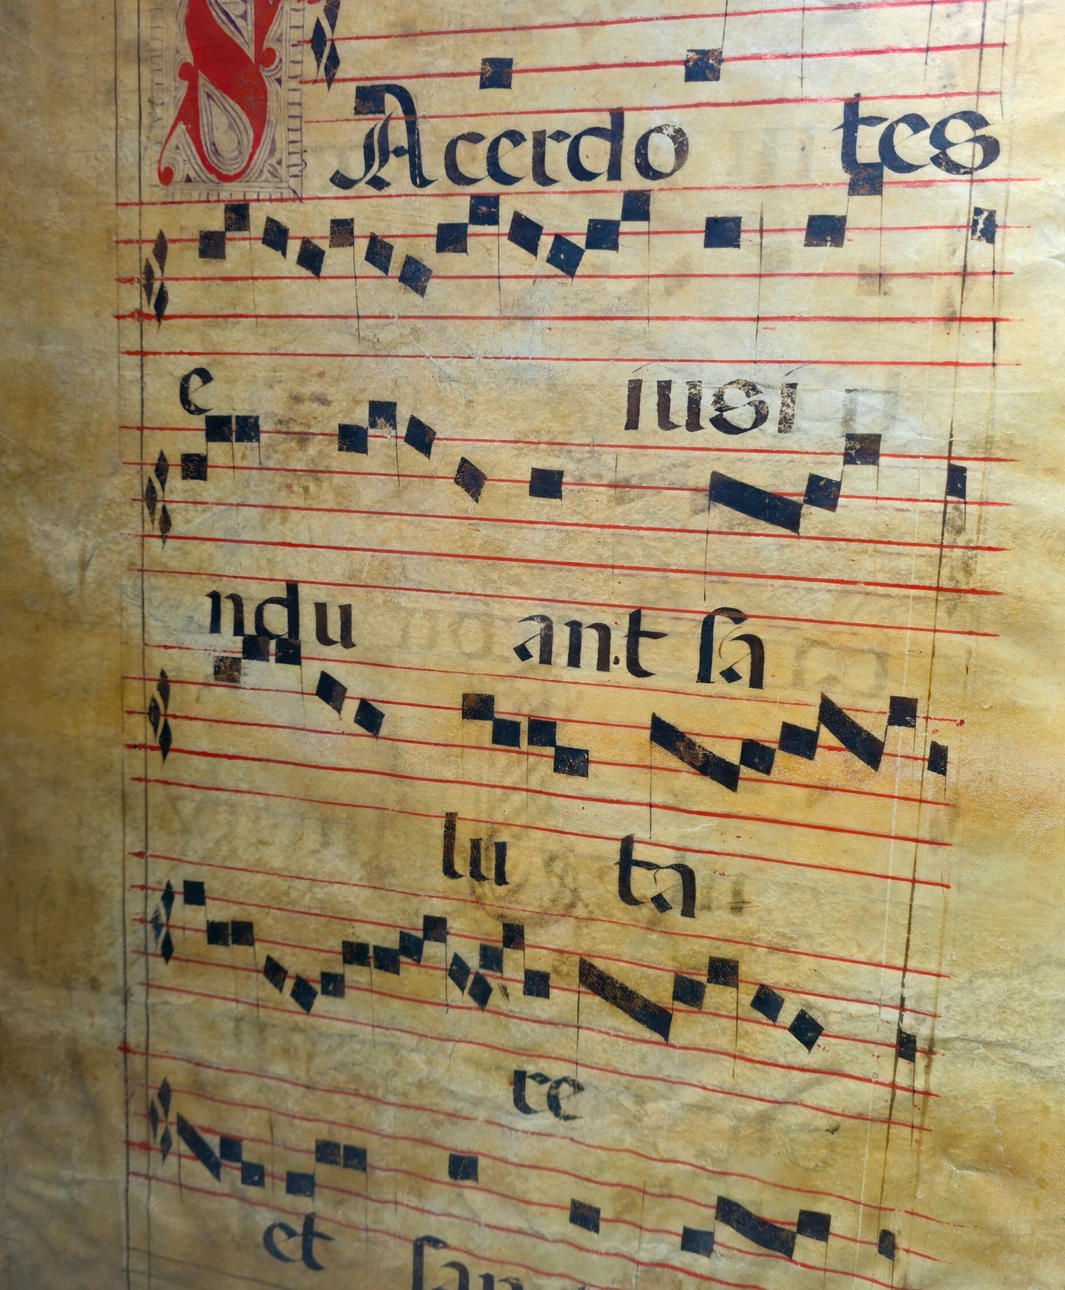 SAcerdo tes
e iusi
ndu ant sa
lu ta
re
et san